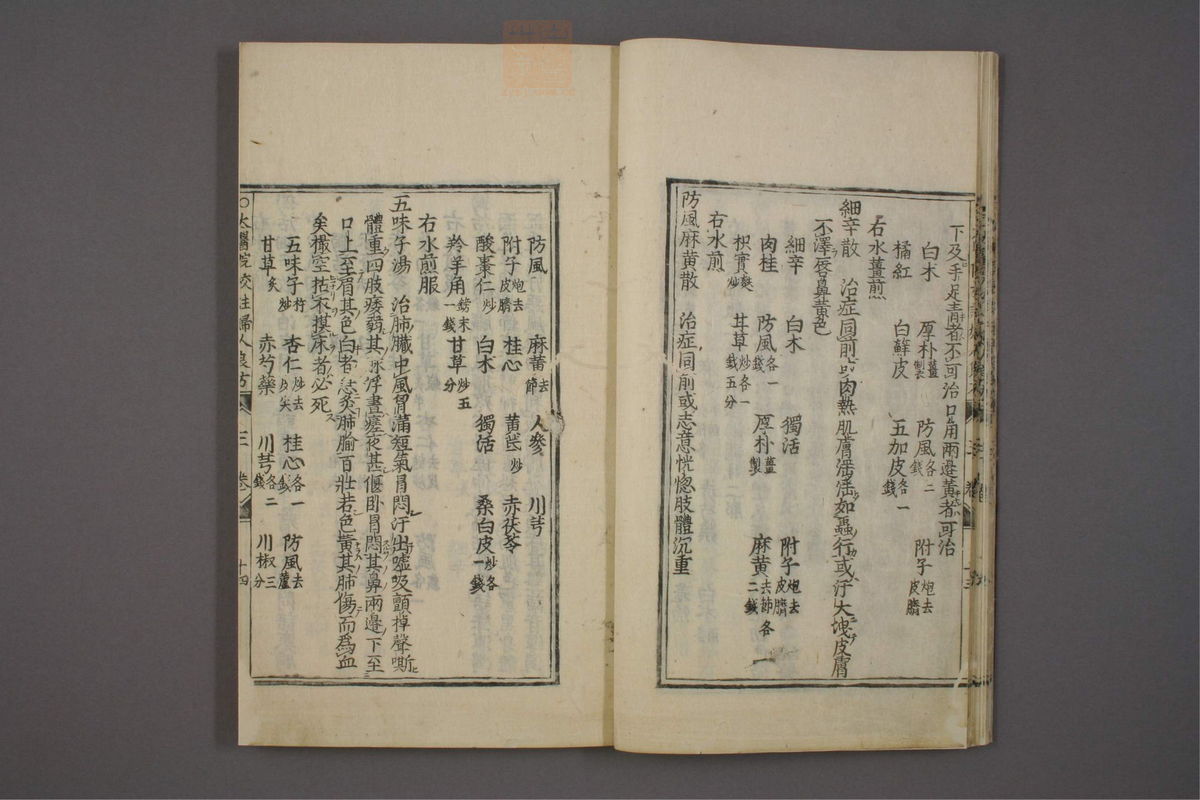 下及手足青者不可治口角兩邊黃者可治
白木 厚朴薑製 防風各二錢 附子炮去皮臍
橘紅 白蘚皮 五加皮各一錢
右水薑煎
細辛散 治症同前或肉熱肌膚淫淫如蟲行或汗大洩皮膚
不澤唇鼻黃色
細辛 白木 獨活 附子炮去皮臍
肉桂 防風各一錢 厚朴薑製 麻黃去節各二錢
枳實麩炒 甘草炒各一錢五分
右水煎
防風麻黃散 治症同前或志意恍惚肢體沉重
防風 麻黃去節 人參 川芎
附子炮去皮臍 桂心 黃芪炒 赤茯苓
酸棗仁炒 白木 獨活 桑白皮炒各一錢
羚羊角鎊末一錢 甘草炒五分
右水煎服
五味子湯 治肺臟中風胸滿短氣冒悶汗出噓吸顫掉聲嘶
體重四肢痿弱其脉浮晝瘥夜甚偃卧冒悶其鼻兩邊下至
口上至眉其色白者急灸肺腧百壯若色黃其肺傷而為血
矣撮空拈衣摸床者必死
五味子杵炒 杏仁炒去尖 桂心各一錢 防風去蘆
甘草炙 赤芍藥 川芎各二錢 川椒三分
○太醫院校註婦人良方 卷三 十四